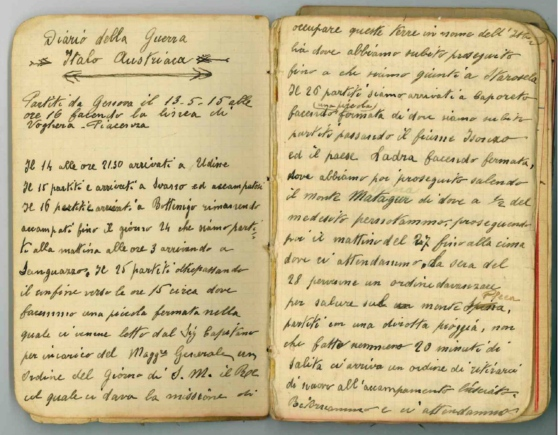 Diario della Guerra
Italo Austriaca
Partiti da Genova il 13-5-15 alle
ore 16 facendo la linea di
Voghera - Piacenza
Il 14 alle ore 21.30 arrivati a Udine
Il 15 partiti e arrivati a ed accampati
Il 16 partiti e arrivati a Bottenigo rimanendo
accampati fino il giorno 24 che siamo parti-
ti alla mattina alle ore 3 arrivando a
Sanguarzo. Il 25 partiti oltrepassando
il confine verso le ore 15 circa dove
facemmo una picola fermata nella
quale ci venne letto dal Sig Capitano
per incarico del Magg.re Generale, un
Ordine del Giorno di S. M. il Re
col quale ci dava la missione di
occupare queste terre in nome dell'Ita
lia dove abbiamo subito proseguito
fino a che siamo giunti a
Il 26 partiti siamo arrivati a Caporeto
facendo una picola fermata di dove siamo subito
partiti passando il fiume Isonzo
ed il paese Ladra facendo fermata,
dove abbiamo poi proseguito salendo
il monte di dove a 1/2 del
medesito pernotammo, proseguendo
poi il mattino del 27 fino alla cima
dove ci attendammo. La sera del
28 pervenne un ordine
per salure sul monte
partiti con una dirotta pioggia, non
che fatto nemmeno 20 minuti di
salita ci arriva un ordine di ritirarci
di nuovo all'accampamento
e ci attendammo